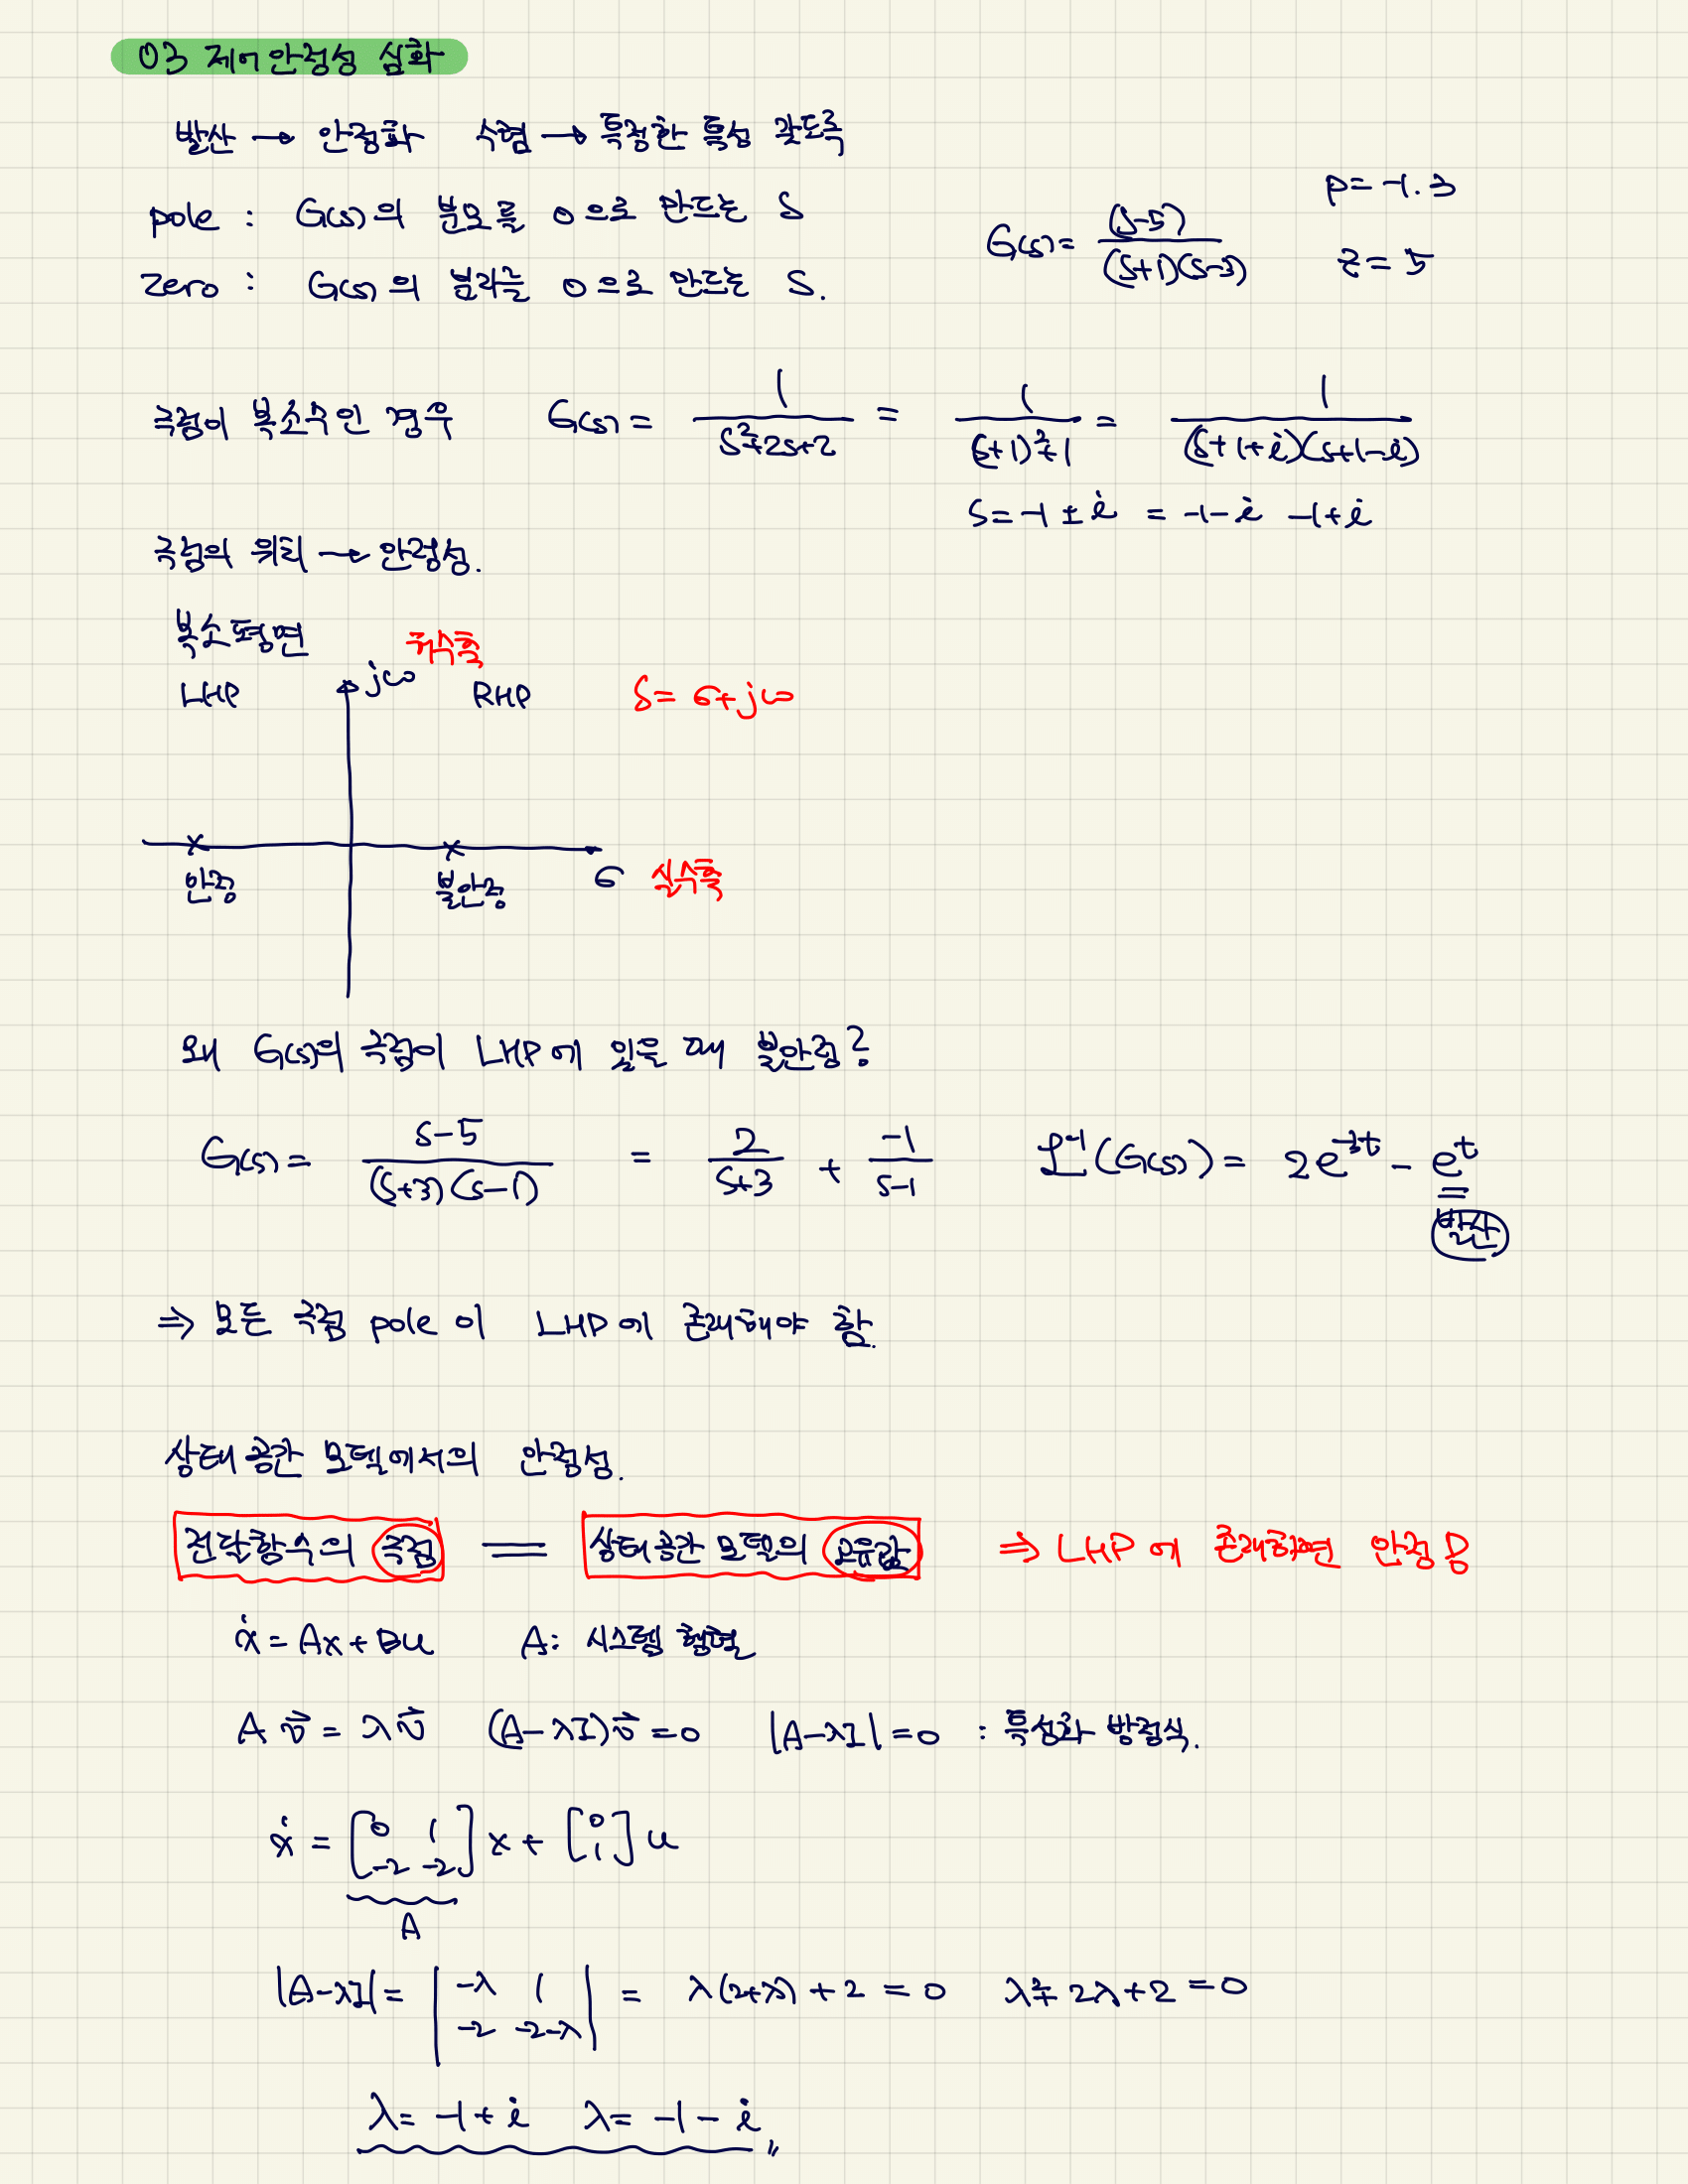 03 제어안정성 심화
발산 → 안정화 수렴 → 특정한 특성 갖도록
pole : G(s)의 분모를 0으로 만드는 S
zero : G(s)의 분자를 0으로 만드는 S.
G(s) = (s-5) / (s+1)(s-3)
p = -1. 3
z = 5
극점이 복소수인 경우 G(s) = 1 / s²+2s+2 = 1 / (s+1)²+1 = 1 / (s+1+i)(s+1-i)
S = -1 ± i = -1-i -1+i
극점의 위치 → 안정성.
복소평면
허수축
LHP jω RHP S = σ+jω
안정 불안정 σ 실수축
왜 G(s)의 극점이 LHP에 있을 때 불안정?
G(s) = s-5 / (s+3)(s-1) = 2 / s+3 + -1 / s-1 ℒ⁻¹(G(s)) = 2e^-3t - e^t
발산
⇒ 모든 극점 pole이 LHP에 존재해야 함.
상태공간 모델에서의 안정성.
전달함수의 극점 = 상태공간 모델의 고유값 ⇒ LHP에 존재하면 안정함
ẋ = Ax + Bu A: 시스템 행렬
A v⃗ = λ v⃗ (A-λI)v⃗ = 0 |A-λI| = 0 : 특성화 방정식.
ẋ = [0 1 -2 -2] x + [0 1] u
A
|A-λI| = | -λ 1 -2 -2-λ | = λ(2+λ) + 2 = 0 λ² + 2λ + 2 = 0
λ = -1 + i λ = -1 - i 〃